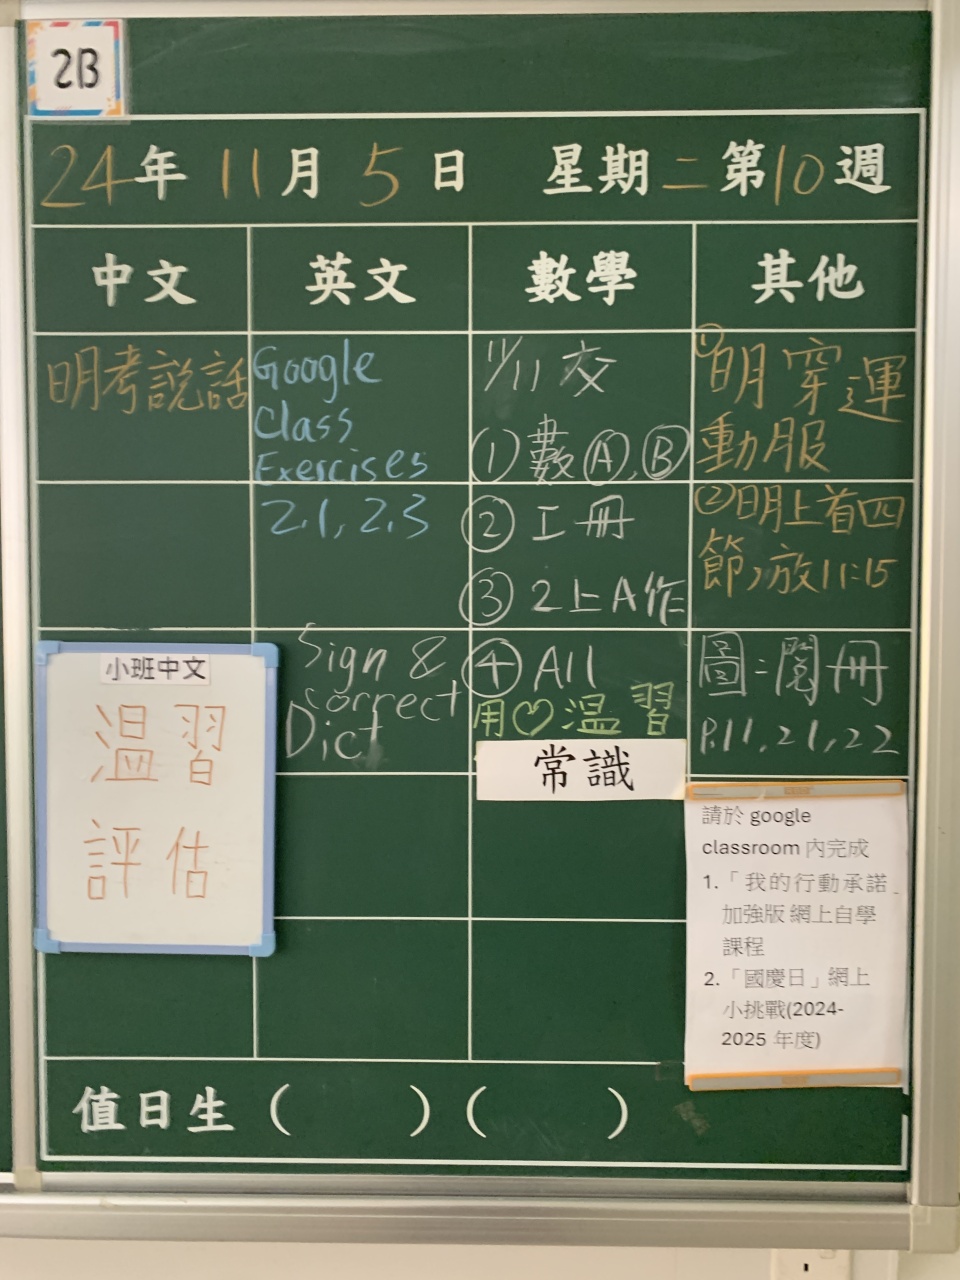 2B
24年 11月 5日 星期二第10週
中文 英文 數學 其他
明考說話
Google
Class
Exercises
2.1, 2.3
Sign &
correct
Dict
11/11 交
① 數Ⓐ,Ⓑ
② 工冊
③ 2上A作
④ All
用♡溫習
常識
① 明穿運
動服
② 明上首四
節,放11:15
圖:閱冊
P.11, 21, 22
小班中文
溫習
評估
請於 google
classroom 內完成
1.「我的行動承諾」
加強版 網上自學
課程
2.「國慶日」網上
小挑戰(2024-
2025 年度)
值日生 ( ) ( )